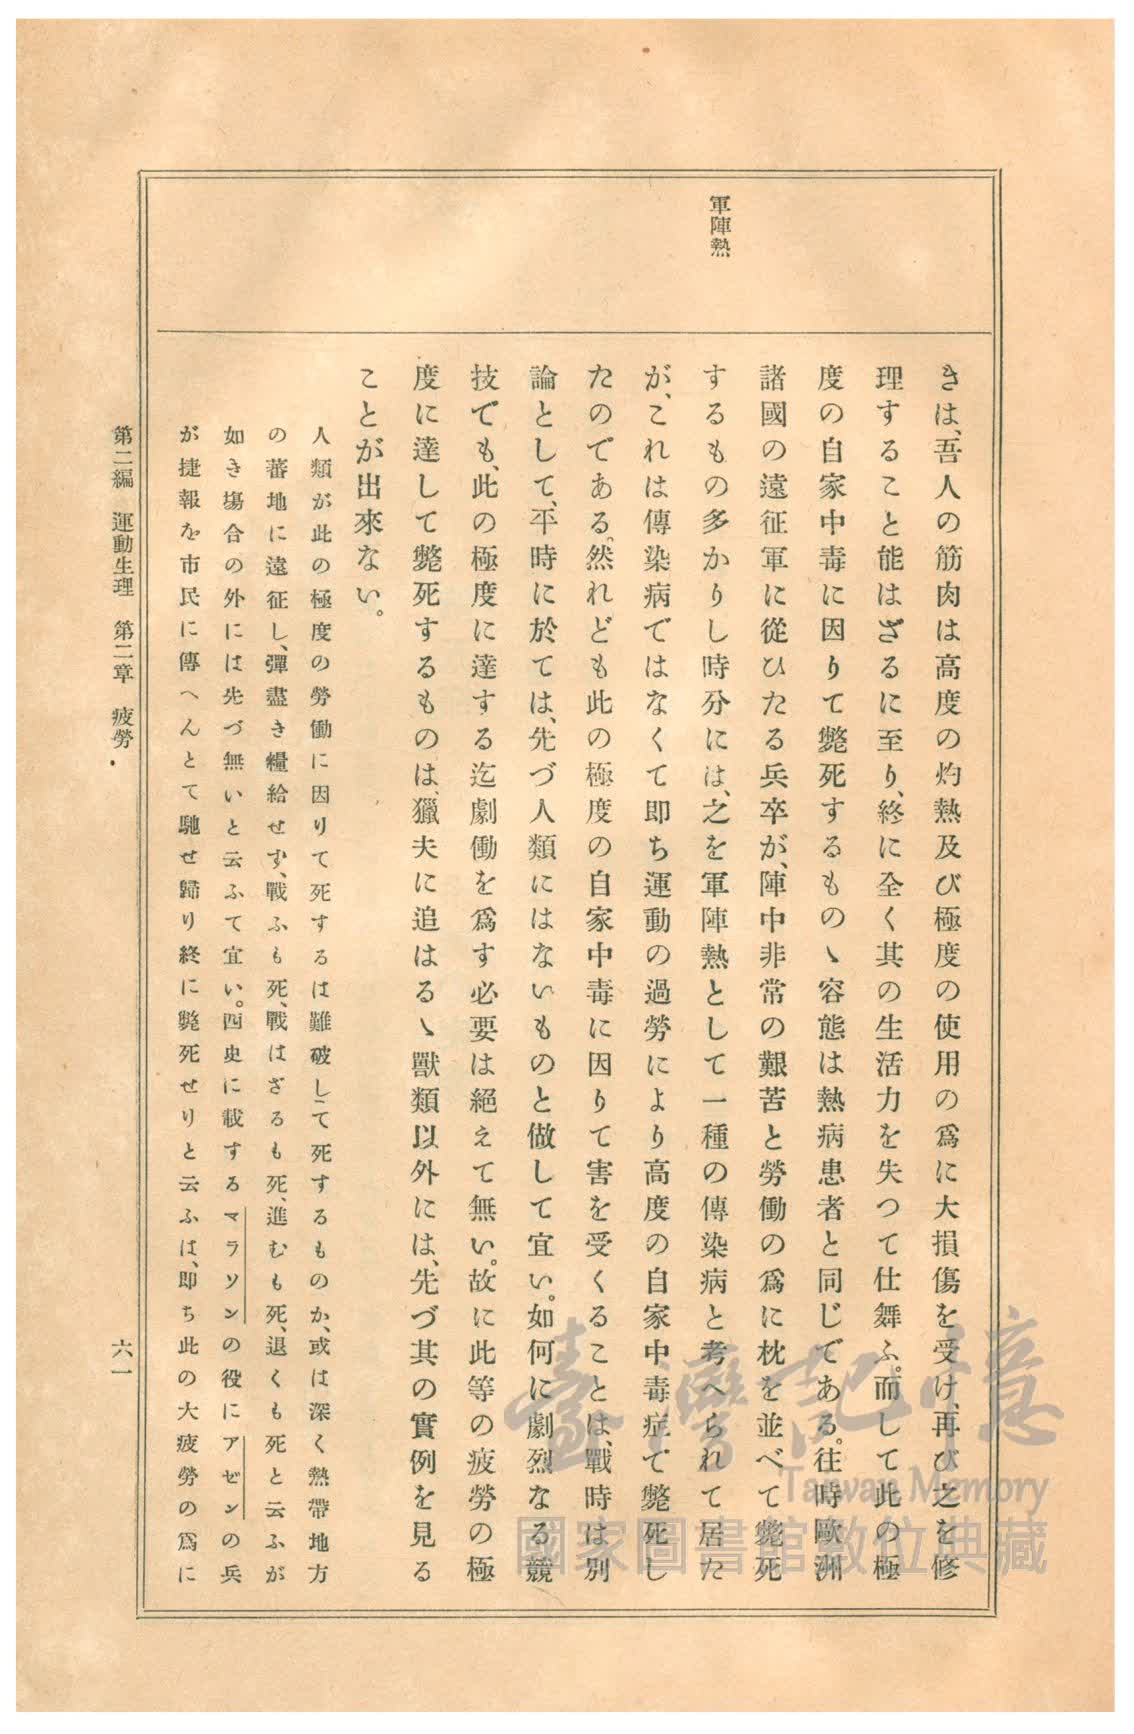 軍陣熱
きは、吾人の筋肉は高度の灼熱及び極度の使用の爲に大損傷を受け、再び之を修
理すること能はざるに至り、終に全く其の生活力を失つて仕舞ふ。而して此の極
度の自家中毒に因りて斃死するものゝ容態は熱病患者と同じである。往時歐洲
諸國の遠征軍に從ひたる兵卒が、陣中非常の艱苦と勞働の爲に枕を並べて斃死
するもの多かりし時分には、之を軍陣熱として一種の傳染病と考へられて居た
が、これは傳染病ではなくて即ち運動の過勞により高度の自家中毒症で斃死し
たのである。然れども此の極度の自家中毒に因りて害を受くることは、戰時は別
論として、平時に於ては、先づ人類にはないものと做して宜い。如何に劇烈なる競
技でも、此の極度に達する迄劇働を爲す必要は絕えて無い。故に此等の疲勞の極
度に達して斃死するものは、獵夫に追はるゝ獸類以外には、先づ其の實例を見る
ことが出來ない。
人類が此の極度の勞働に因りて死するは難破して死するものか、或は深く熱帶地方
の蕃地に遠征し、彈盡き糧給せず、戰ふも死、戰はざるも死、進むも死、退くも死と云ふが
如き塲合の外には先づ無いと云ふて宜い。西史に載するマラソンの役にアゼンの兵
が捷報を市民に傳へんとて馳せ歸り終に斃死せりと云ふは、即ち此の大疲勞の爲に
第二編 運動生理 第二章 疲勞
六一
臺灣記憶
Taiwan Memory
國家圖書館數位典藏